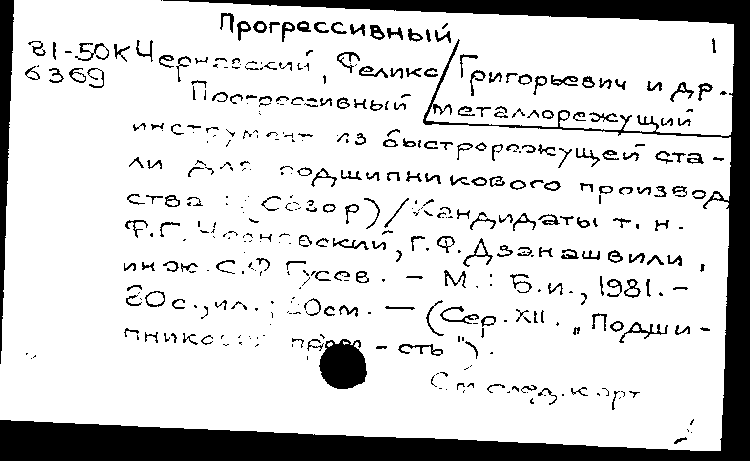 Прогрессивный
1
81-50К Чернавский, Феликс Григорьевич и др.
6369
Прогрессивный металлорежущий
инструмент из быстрорежущей ста-
ли для подшипникового производ
ства : (Обзор) / Кандидаты т. н.
Ф.Г. Чернавский, Г.Ф. Дзанашвили,
инж. С.Ф Гусев. - М.: Б.и., 1981. -
80с., ил.; 20см. — (Сер. XII. „Подши-
пниковая пром-сть").
См след. карт